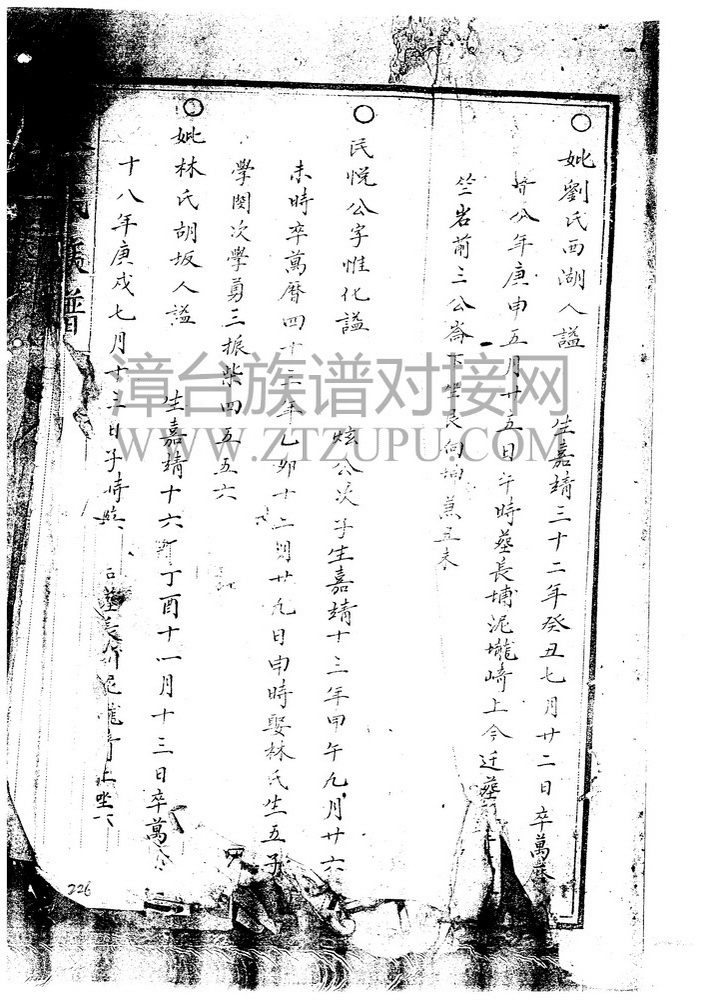 妣劉氏西湖人諡
生嘉靖三十二年癸丑七月廿二日卒萬
八年庚申五月廿五日午時塟長埔泥壠崎上今迁塟
竺岩前三公崙下坐艮向坤兼丑未
民悅公字惟化諡
炫公次子生嘉靖十三年甲午九月廿六
未時卒萬曆四十三年乙卯十二月廿九日申時娶林氏生五子
學閔次學勇三振柴四五六
妣林氏胡坂人諡
生嘉靖十六丁酉十一月十三日卒萬
十八年庚戌七月十三日子時
塟長泥壠崎上坐
族譜
226
漳台族谱对接网
WWW.ZTZUPU.COM